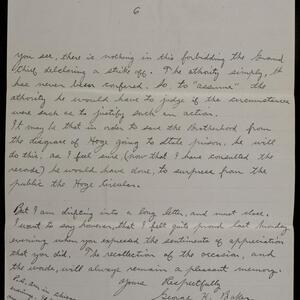 6
you see, there is nothing in this forbidding the Grand
Chief declaring a strike off. The athority simply, it
has never been confered. So, to "assume" the
athority he would have to judge if the circumstances
were such as to justify such an action.
It may be that in order to save the Brotherhood from
the disgrace of Hoge going to State prison, he will
do this, as I feel sure (now that I have consulted the
records) he would have done, to surpress from the
public the Hoge Circular.
But I am drifting into a long letter, and must close.
I want to say however, that I felt quite proud last Sunday
evening when you expressed the sentiments of appreciation
that you did. The recollection of the occasion, and
the words, will always remain a pleasant memory.
Yours Respectfully
George K. Baker
P.S. am in